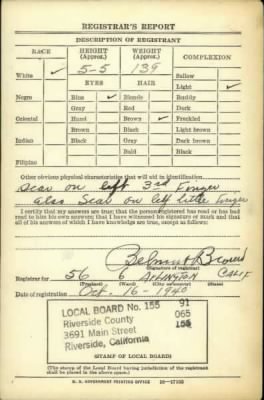 REGISTRAR'S REPORT
DESCRIPTION OF REGISTRANT
RACE HEIGHT (Approx.) WEIGHT (Approx.) COMPLEXION
White ✓ 5-5 139 Sallow
EYES HAIR Light ✓
Negro Blue ✓ Blonde Ruddy
Gray Red Dark
Oriental Hazel Brown ✓ Freckled
Brown Black Light brown
Indian Black Gray Dark brown
Bald Black
Filipino
Other obvious physical characteristics that will aid in identification
Scar on left 3rd Finger
also Scar on left little finger
I certify that my answers are true; that the person registered has read or has had
read to him his own answers; that I have witnessed his signature or mark and that
all of his answers of which I have knowledge are true, except as follows:
Belmont
(Signature of registrar)
Registrar for 56 6 Arlington Calif.
(Precinct) (Ward) (City or county) (State)
Date of registration Oct. 16 - 1940
LOCAL BOARD No. 155 91
Riverside County 065
3691 Main Street 155
Riverside, California
(STAMP OF LOCAL BOARD)
(The stamp of the Local Board having jurisdiction of the registrant
shall be placed in the above space.)
U. S. GOVERNMENT PRINTING OFFICE 16-17105